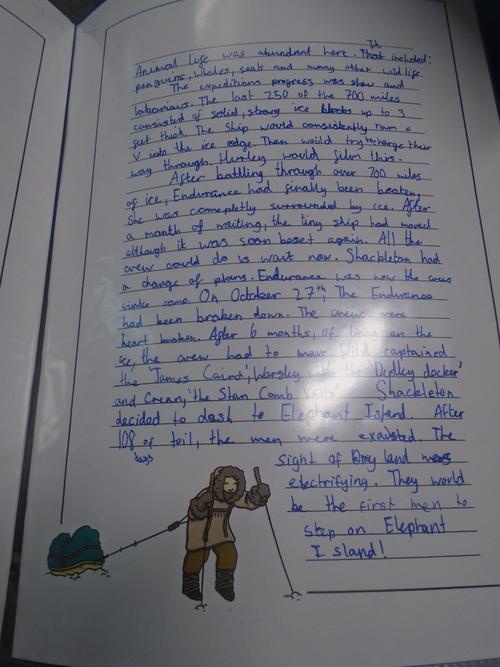 It
Animal life was abundant here. That included:
penguins, whales, seals and many other wild life.
The expeditions progress was slow and
labourious. The last 250 of the 700 miles
consisted of solid, strong ice up to 3
feet thick. The Ship would consistently ram a
V into the ice edge. Then would try recharge their
way through. Hurley would film this.
After battling through over 700 miles
of ice, Endurance had finally been beaten.
She was completly surrounded by ice. After
a month of waiting, the tiny ship had moved
although it was soon beset again. All the
crew could do is wait now. Shackleton had
a change of plans. Endurance was now the crews
winter camp. On October 27th, The Endurance
had been broken down. The crews were
heart broken. After 6 months, of living on the
ice, the crew had to move. Wild captained
the 'James Caird', Worsley the Dudley docker'
and Crean, 'the Stan Comb Wills'. Shackleton
decided to dash to Elephant Island. After
108 of toil, the men were exausted. The
days
sight of Dry land was
electrifying. They would
be the first men to
step on Elephant
Island!